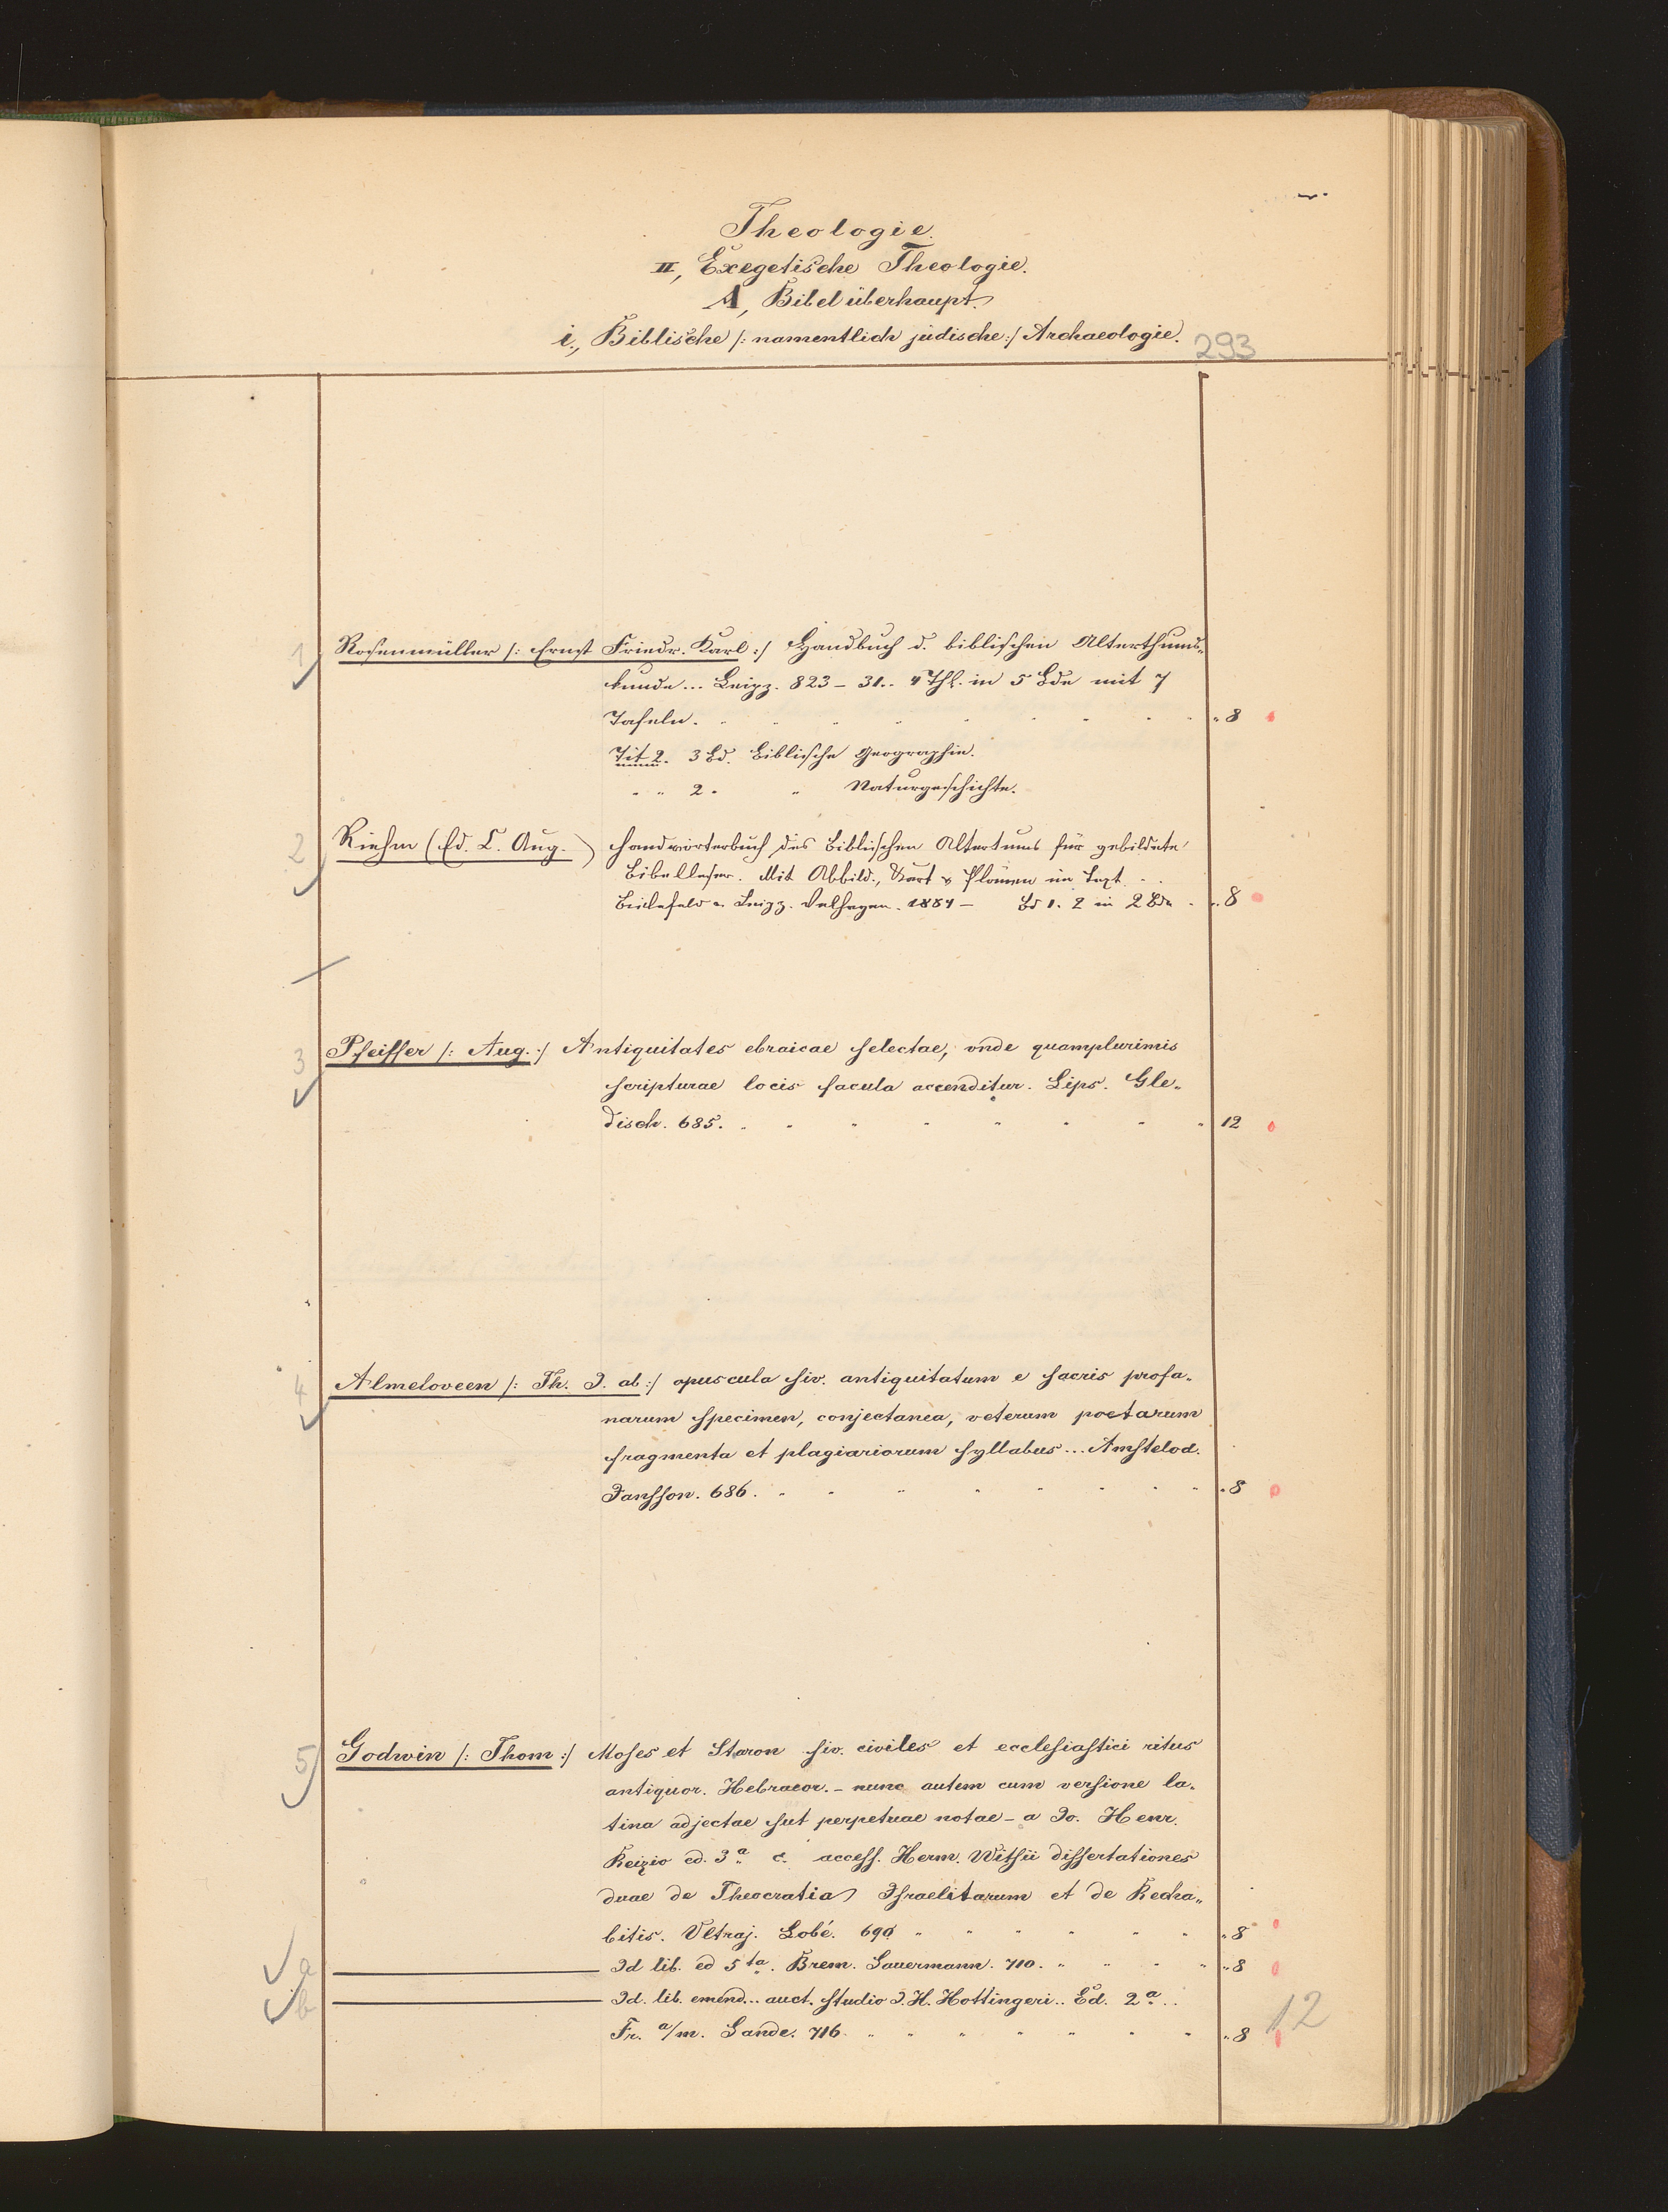 Theologie.
II, Exegetische Theologie.
A, Bibel überhaupt.
i., Biblische /: namentlich jüdische :/ Archaeologie.
293
1
Rosenmüller /: Ernst Friedr. Karl :/ Handbuch d. biblischen Alterthums-
kunde... Leipz. 823–31.. 4 Thl. in 5 Bde mit 7
Tafeln. „8
Tit 2. 3 Bd. Biblische Geographie.
„ „ 2 „ „ Naturgeschichte.
2
Riehm (Ed. C. Aug.) Handwörterbuch des Biblischen Altertums für gebildete
Bibelleser. Mit Abbild., Kart & Plänen im Text. . .
Bielefeld u. Leipz. Velhagen. 1884 – Bd 1. 2 in 2 Bde „8
3
Pfeiffer /: Aug. :/ Antiquitates ebraicae selectae, unde quamplurimis
scripturae locis facula accenditur. Lips. Gle-
disch. 685. 12
4
Almeloveen /: Th. J. ab :/ opuscula siv. antiquitatum e sacris profa-
narum specimen, conjectanea, veterum poetarum
fragmenta et plagiariorum syllabus... Amstelod.
Jansson. 686. „8
5
Godwin /: Thom :/ Moses et Aaron siv. civiles et ecclesiastici ritus
antiquor. Hebraeor. – nunc autem cum versione la-
tina adjectae sut perpetuae notae – a Jo. Henr.
Reizio ed. 3a c. access. Herm. Witsii dissertationes
duae de Theocratia Israelitarum et de Recha-
bitis. Ultraj. Lobé. 690 „8
a
Id lib. ed 5ta. Brem. Sauermann. 710. „8
b
Id. lib. emend... auct. studio J. H. Hottingeri.. Ed. 2a..
Fr. a/m. Sande. 716. „8
12